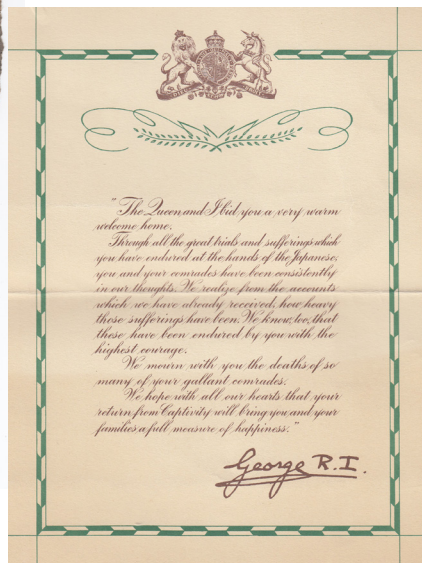 "The Queen and I bid you a very warm
welcome home.
Through all the great trials and sufferings which
you have endured at the hands of the Japanese,
you and your comrades have been consistently
in our thoughts. We realize from the accounts
which we have already received, how heavy
those sufferings have been. We know, too, that
these have been endured by you with the
highest courage.
We mourn with you the deaths of so
many of your gallant comrades.
We hope with all our hearts that your
return from Captivity will bring you and your
families a full measure of happiness."
George R.I.